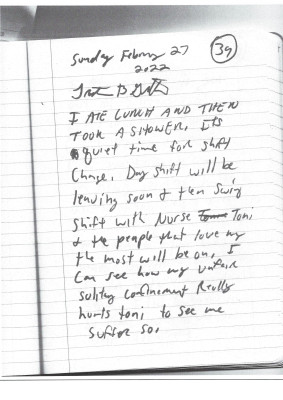 Sunday February 27
39
2022
I ATE LUNCH AND THEN
TOOK A SHOWER. ITS
quiet time for shift
Change. Day shift will be
leaving soon & then Swing
shift with Nurse Toni
& the people that love my
the most will be on. I
Can see how my unfair
solitary confinement Really
hurts toni to see me
Suffer so.